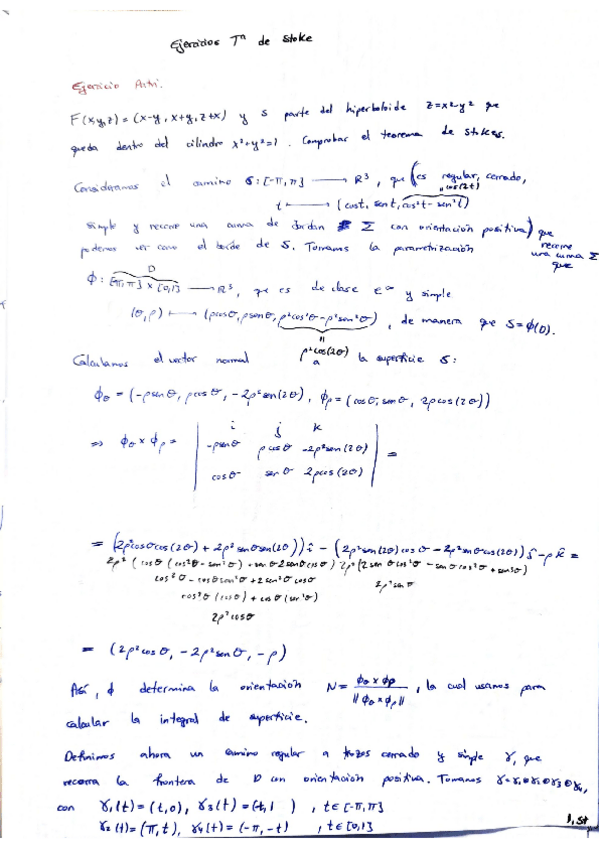 Ejercicios Tª de Stoke
Ejercicio Arturi.
F(x,y,z) = (x-y, x+y, z+x) y S parte del hiperboloide z=x²-y² que
queda dentro del cilindro x²+y²=1. Comprobar el teorema de Stokes.
Consideramos el camino σ: [-π,π] → R³, que (es regular, cerrado,
cos(2t)
t ↦ (cost, sent, cos²t - sen²t)
simple y recorre una curva de Jordan Σ con orientación positiva) que
recorre una curva Σ que
podemos ver como el borde de S. Tomamos la parametrización
D
Φ: [-π,π] x [0,1] → R³, que es de clase C∞ y simple
(θ,ρ) ↦ (ρcosθ, ρsenθ, ρ²cos²θ - ρ²sen²θ), de manera que S=Φ(D).
ρ²cos(2θ)
Calculamos el vector normal a la superficie S:
Φθ = (-ρsenθ, ρcosθ, -2ρ²sen(2θ)), Φρ = (cosθ, senθ, 2ρcos(2θ))
i j k
=> Φθ x Φρ = | -ρsenθ ρcosθ -2ρ²sen(2θ) | =
cosθ senθ 2ρcos(2θ)
= (2ρ²cosθcos(2θ) + 2ρ²senθsen(2θ)) î - (2ρ²sen(2θ)cosθ - 2ρ²senθcos(2θ)) ĵ - ρ k̂ =
2ρ² (cosθ (cos²θ - sen²θ) + senθ 2senθcosθ) 2ρ² (2senθcos²θ - senθcos²θ + sen³θ)
cos³θ - cosθsen²θ + 2sen²θcosθ
cos²θ (cosθ) + cosθ (sen²θ)
2ρ²cosθ
= (2ρ²cosθ, -2ρ²senθ, -ρ)
Así, Φ determina la orientación N = Φθ x Φρ / ||Φθ x Φρ||, la cual usamos para
calcular la integral de superficie.
Definimos ahora un camino regular a trozos cerrado y simple γ, que
recorra la frontera de D con orientación positiva. Tomamos γ=γ₁⊕γ₂⊕γ₃⊕γ₄,
con γ₁(t) = (t,0), γ₃(t) = (-t,1), t∈[-π,π]
γ₂(t) = (π,t), γ₄(t) = (-π,-t), t∈[0,1]